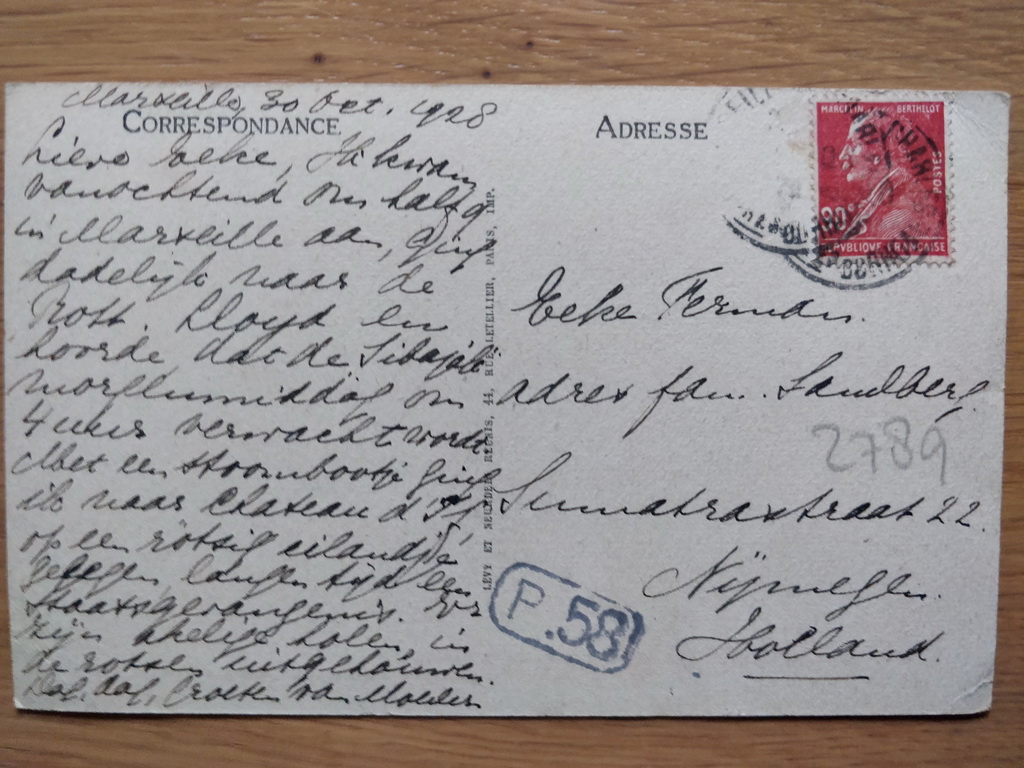 Marseille, 30 Oct. 1928
CORRESPONDANCE
Lieve Eeke, Ik kwam
vanochtend om half 9
in Marseille aan, ging
dadelijk naar de
Rott. Lloyd en
hoorde dat de Sibajak
morgenmiddag om
4 uur verwacht wordt
Met een stoombootje ging
ik naar Chateau d'If
op een rotsig eilandje
gelegen, langen tijd een
staatsgevangenis. Er
zijn akelige holen in
de rotsen uitgehouwen.
Dag, dag, Groeten van Moeder
LÉVY ET NEURDEIN RÉUNIS, 44, RUE LETELLIER, PARIS, IMP.
ADRESSE
MARCELIN BERTHELOT
POSTES
90c
REPVBLIQUE FRANCAISE
Eeke
adres fam. Sandberg
2789
Sumatrastraat 22.
Nijmegen.
Holland.
P.58